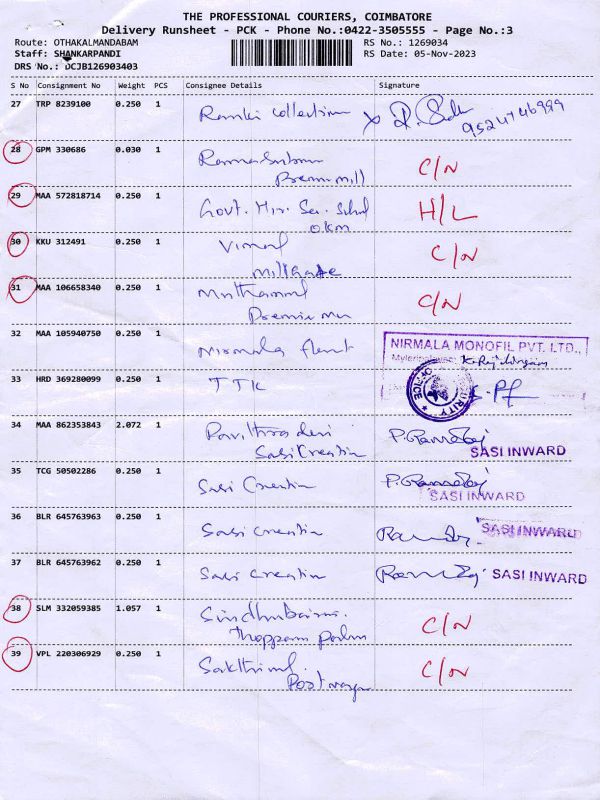 THE PROFESSIONAL COURIERS, COIMBATORE
Delivery Runsheet - PCK - Phone No.:0422-3505555 - Page No.:3
Route: OTHAKALMANDABAM RS No.: 1269034
Staff: SHANKARPANDI RS Date: 05-Nov-2023
DRS No.: DCJB126903403
S No Consignment No Weight PCS Consignee Details Signature
27 TRP 8239100 0.250 1 Ramki Collection
28 GPM 330686 0.030 1 C/N
Premier mill
29 MAA 572818714 0.250 1 Govt. Hir. Sec. Schl H/L
OKM
30 KKU 312491 0.250 1 Vimal C/N
millgate
31 MAA 106658340 0.250 1 C/N
32 MAA 105940750 0.250 1 Nirmala NIRMALA MONOFIL PVT. LTD.,
33 HRD 369280099 0.250 1 TTK SECURITY OFFICE
34 MAA 862353843 2.072 1 Pavithradevi P. Ramaraj
Sasi Creation SASI INWARD
35 TCG 50502286 0.250 1 Sasi Creation P. Ramaraj
SASI INWARD
36 BLR 645763963 0.250 1 Sasi creation SASI INWARD
37 BLR 645763962 0.250 1 Sasi creation SASI INWARD
38 SLM 332059385 1.057 1 C/N
39 VPL 220306929 0.250 1 Sakthivel C/N